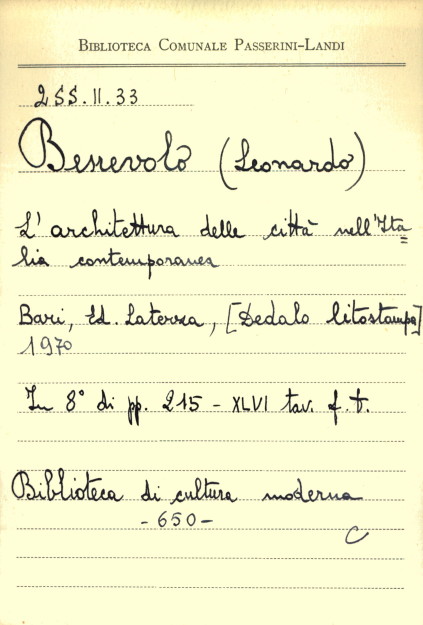 BIBLIOTECA COMUNALE PASSERINI-LANDI
255.II.33
Benevolo (Leonardo)
L'architettura delle città nell'Ita=
lia contemporanea
Bari, Ed. Laterza, [Dedalo litostampa]
1970
In 8° di pp. 215 - XLVI tav. f.t.
Biblioteca di cultura moderna
- 650 -
C